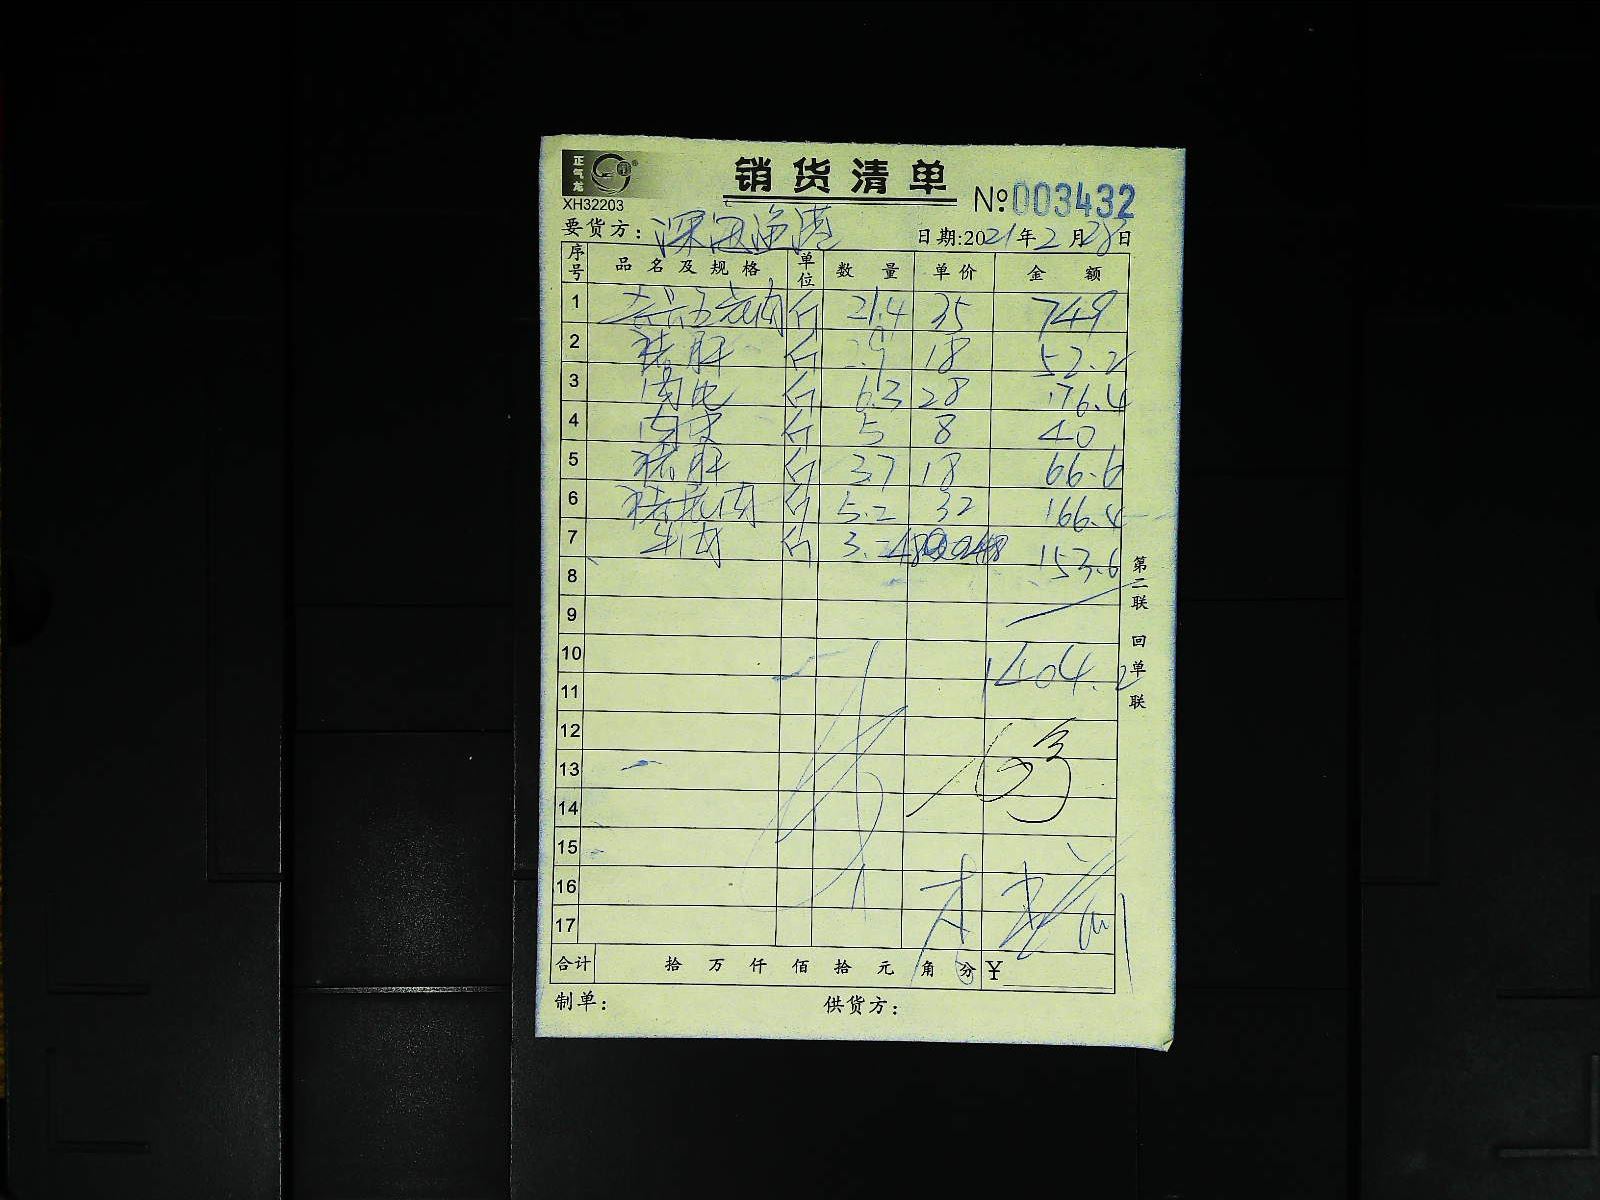 正气龙
XH32203
销货清单
№003432
要货方：深海渔港
日期:2021年2月28日
序号 品名及规格 单位 数量 单价 金额
1 去六五花肉 斤 21.4 35 749
2 猪肝 斤 2.9 18 52.2
3 肉 斤 6.3 28 176.4
4 肉皮 斤 5 8 40
5 猪肝 斤 3.7 18 66.6
6 猪 肉 斤 5.2 32 166.4
7 牛肉 斤 3.2 48 153.6
8
9
10 1404.2
11
12
13
14
15
16
17
合计 拾 万 仟 佰 拾 元 角 分 ¥
制单： 供货方：
第二联 回单联